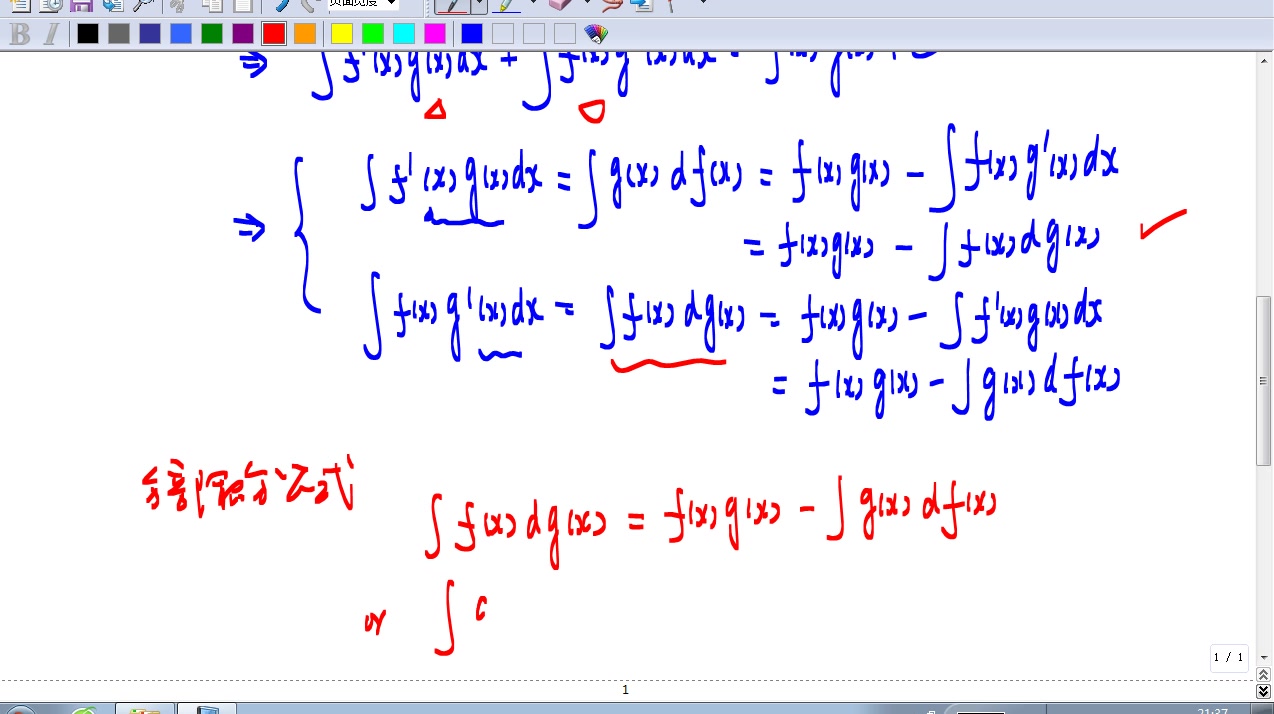 页面宽度
B I
⇒ ∫ f'(x)g(x)dx + ∫ f(x)g'(x)dx = f(x)g(x) + C
⇒ { ∫ f'(x)g(x)dx = ∫ g(x) d f(x) = f(x)g(x) - ∫ f(x)g'(x)dx
= f(x)g(x) - ∫ f(x)dg(x) ✓
∫ f(x)g'(x)dx = ∫ f(x)dg(x) = f(x)g(x) - ∫ f'(x)g(x)dx
= f(x)g(x) - ∫ g(x)d f(x)
分部积分公式
∫ f(x)dg(x) = f(x)g(x) - ∫ g(x)d f(x)
or ∫
1 / 1
1
21:37